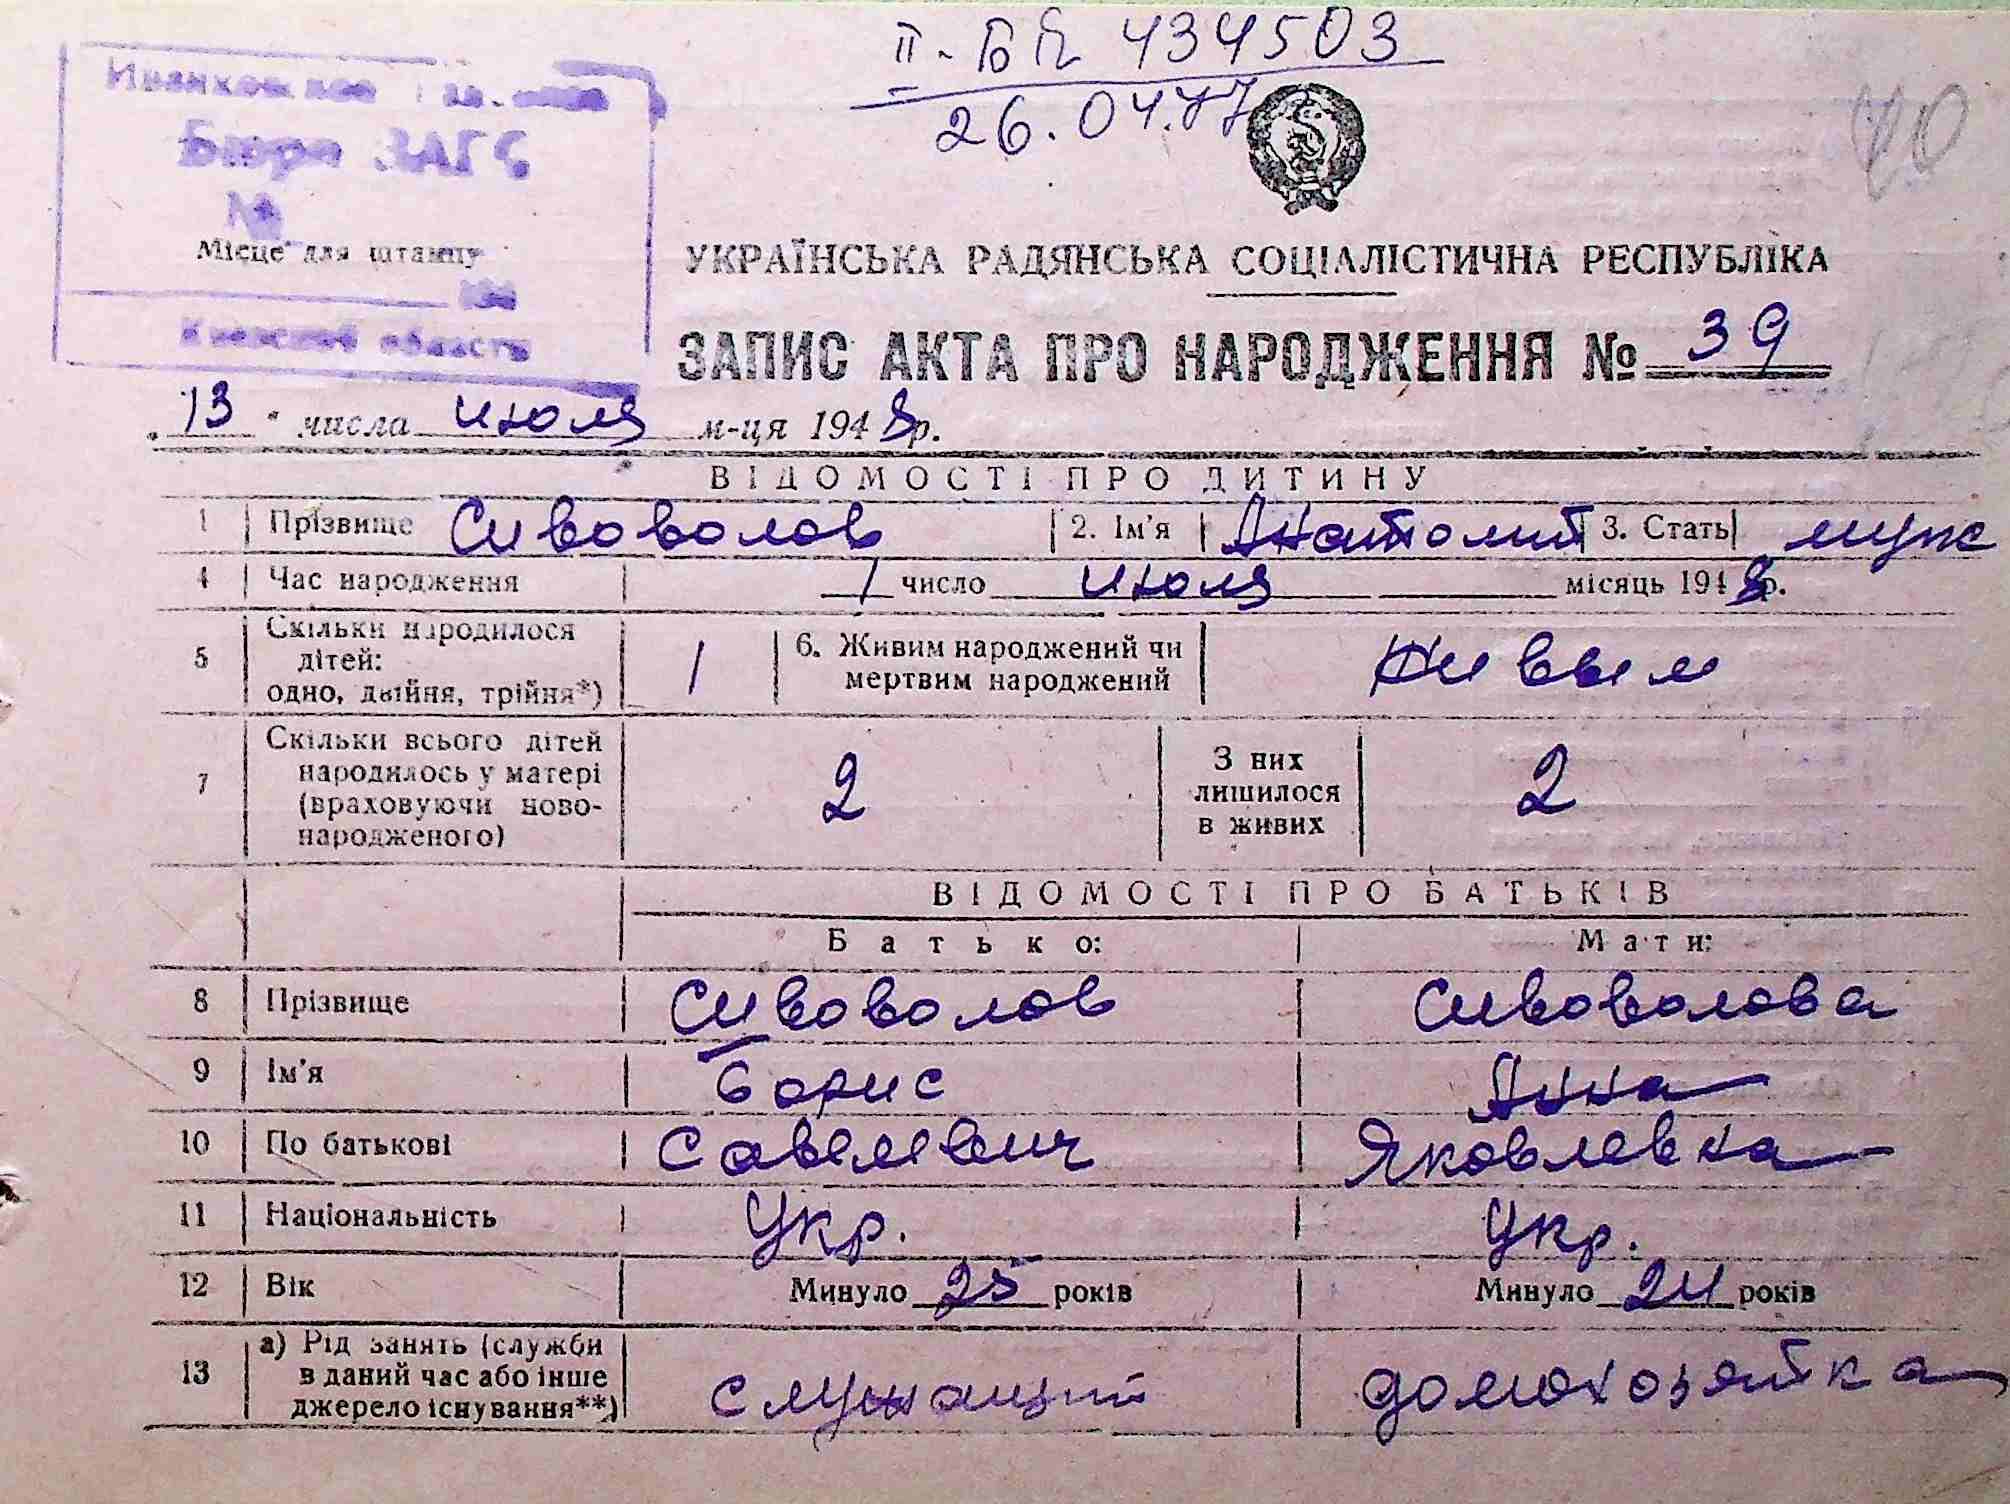 II-БК 434503
26.04.77
40
Бюро ЗАГС
№
Місце для штампу
194
Киевской области
УКРАЇНСЬКА РАДЯНСЬКА СОЦІАЛІСТИЧНА РЕСПУБЛІКА
ЗАПИС АКТА ПРО НАРОДЖЕННЯ № 39
„13" числа июля м-ця 1948р.
ВІДОМОСТІ ПРО ДИТИНУ
1 Прізвище Сивоволов 2. Ім'я Анатолий 3. Стать муж
4 Час народження 1 число июля місяць 1948р.
5 Скільки народилося дітей: одно, двійня, трійня*) 1 6. Живим народжений чи мертвим народжений живым
7 Скільки всього дітей народилось у матері (враховуючи новонародженого) 2 З них лишилося в живих 2
ВІДОМОСТІ ПРО БАТЬКІВ
Батько: Мати:
8 Прізвище Сивоволов Сивоволова
9 Ім'я Борис Анна
10 По батькові Савелевич Яковлевна
11 Національність Укр. Укр.
12 Вік Минуло 25 років Минуло 24 років
13 а) Рід занять (служби в даний час або інше джерело існування**) служащий домохозяйка